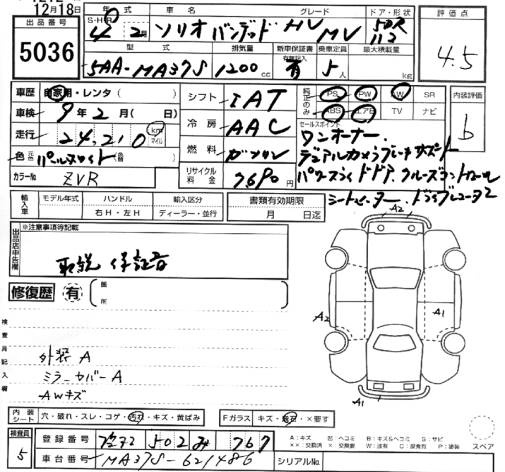 12月18日
出品番号
5036
年式 車名 グレード ドア・形状
S・H・R 4年2月 ソリオバンデット HV MV 5DR
型式 排気量 新車保証書 乗車定員 最大積載量
5AA-MA37S 1200 cc 有 5人 kg
評価点
4.5
車歴 自家用・レンタ ( )
車検 9年2月( 日)
走行 24,210 km マイル
色 パールホワイト
カラーNo ZVR
シフト IAT
冷房 AAC
燃料 ガソリン
リサイクル料金 7690円
純正のみ PS PW SW SR
ABS エアB TV ナビ
セールスポイント
ワンオーナー.
デュアルカメラブレーキサポート
パワースライドドア.クルーズコントロール
シートヒーター.ドライブレコーダー
内装評価
b
輸入車 モデル年式 ハンドル 輸入区分
右H・左H ディーラー・並行
書類有効期限
月 日迄
出品店申告欄
※注意事項等記載
取説 保証書
修復歴 有
箇所
検査員記入欄
外装A
ミラーカバーA
AWキズ
A2
A2
A1
A1
内装シート 穴・破れ・スレ・コゲ・汚れ・キズ・黄ばみ
Fガラス キズ・飛石・×要す
スペア
検査員 5
登録番号 502 767
車台番号 MA37S-621486
シリアルNo.
A:キズ U:ヘコミ B:キズ&ヘコミ S:サビ
××:交換済 ×:要交換 W:波有 C:腐食有 P:塗装